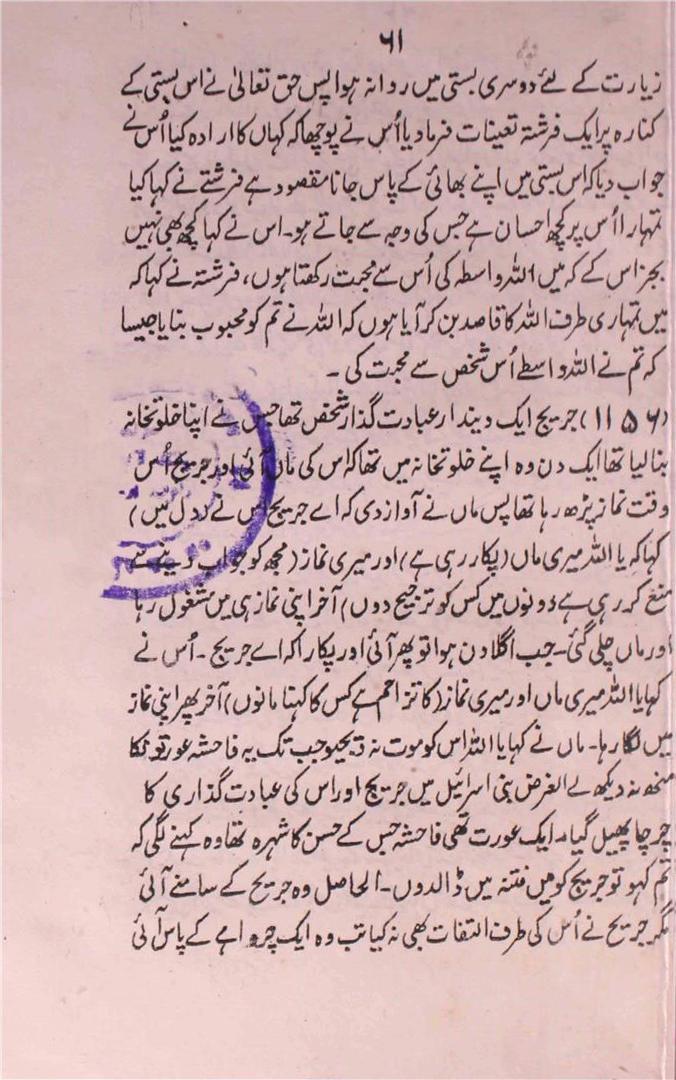 ۶۱
زیارت کے لئے دوسری بستی میں روانہ ہوا پس حق تعالیٰ نے اس بستی کے
کنارہ پر ایک فرشتہ تعینات فرمادیا اُس نے پوچھا کہ کہاں کا ارادہ کیا اُس نے
جواب دیا کہ اس بستی میں اپنے بھائی کے پاس جانا مقصود ہے فرشتے نے کہا کیا
تمہارا اُس پر کچھ احسان ہے جس کی وجہ سے جاتے ہو۔ اس نے کہا کچھ بھی نہیں
بجز اس کے کہ میں اللہ واسطہ کی اُس سے محبت رکھتا ہوں، فرشتہ نے کہا کہ
میں تمہاری طرف اللہ کا قاصد بن کر آیا ہوں کہ اللہ نے تم کو محبوب بنایا جیسا
کہ تم نے اللہ واسطے اُس شخص سے محبت کی ۔
(۱۱۵۶) جریج ایک دیندار عبادت گذار شخص تھا جس نے اپنا خلوتخانہ
بنا لیا تھا ایک دن وہ اپنے خلوتخانہ میں تھا کہ اس کی ماں آئی اور جریج اُس
وقت نماز پڑھ رہا تھا پس ماں نے آواز دی کہ اے جریج اس نے (دل میں)
کہا کہ یا اللہ میری ماں (پکار رہی ہے) اور میری نماز (مجھ کو جواب دینے سے
منع کر رہی ہے دونوں میں کس کو ترجیح دوں) آخر اپنی نماز ہی میں مشغول رہا
اور ماں چلی گئی۔ جب اگلا دن ہوا تو پھر آئی اور پکارا کہ اے جریج ۔ اُس نے
کہا یا اللہ میری ماں اور میری نماز (کا تزاحم ہے کس کا کہنا مانوں) آخر پھر اپنی نماز
میں لگا رہا۔ ماں نے کہا یا اللہ اس کو موت نہ دیجیو جب تک یہ فاحشہ عورتوں کا
منھ نہ دیکھ لے الغرض بنی اسرائیل میں جریج اور اس کی عبادت گذاری کا
چرچا پھیل گیا۔ ایک عورت تھی فاحشہ جس کے حسن کا شہرہ تھا وہ کہنے لگی کہ
تم کہو تو جریج کو میں فتنہ میں ڈالدوں۔ الحاصل وہ جریج کے سامنے آئی
مگر جریج نے اُس کی طرف التفات بھی نہ کیا تب وہ ایک چرواہے کے پاس آئی